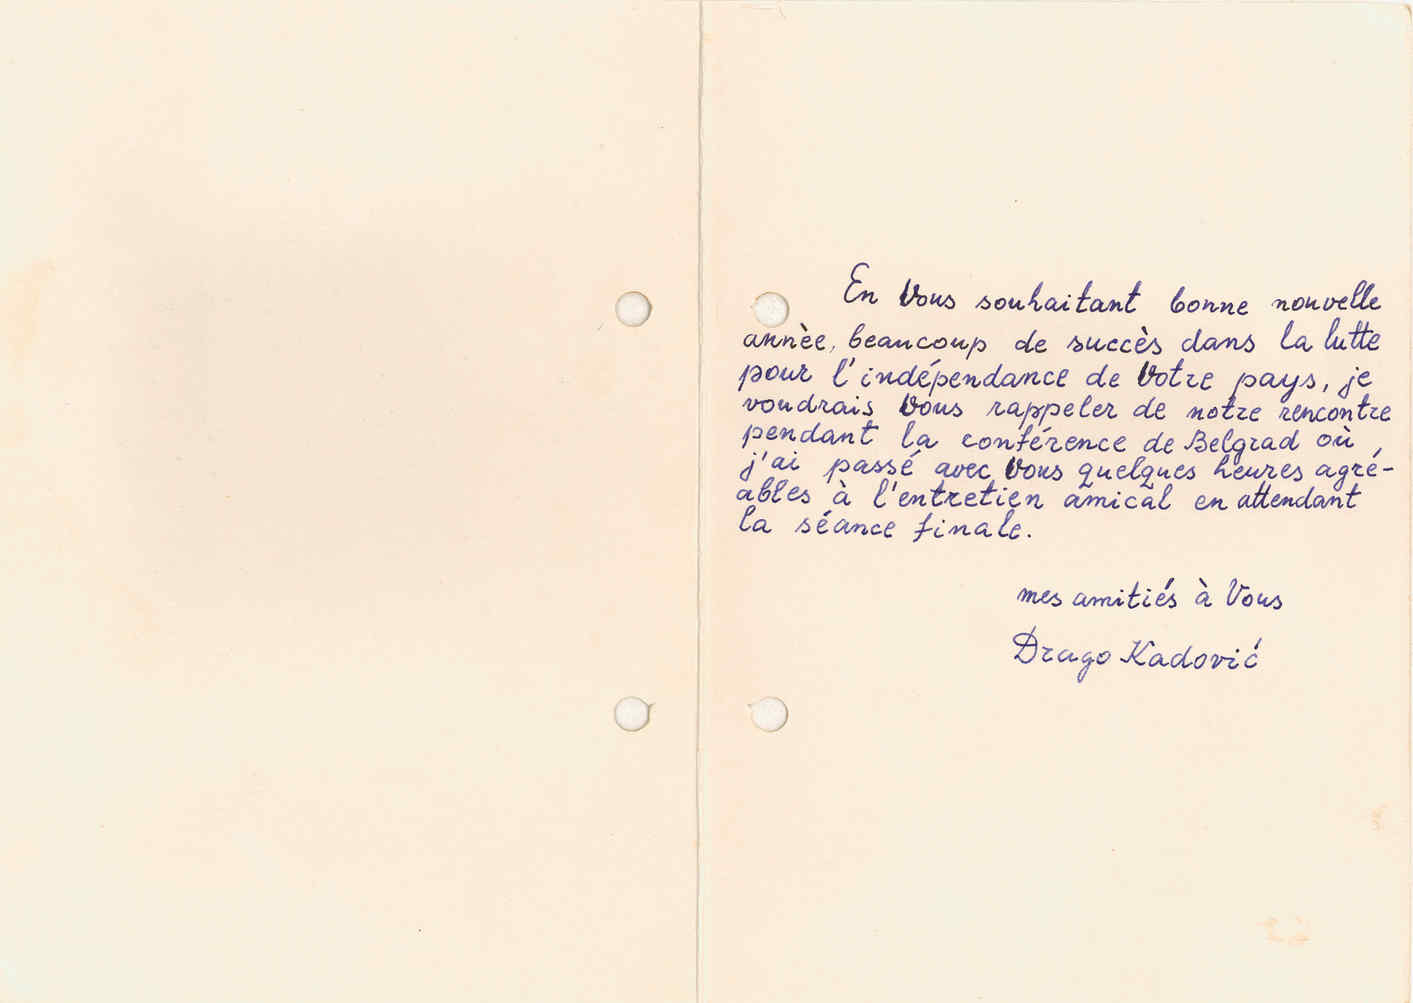 En Vous souhaitant bonne nouvelle
annèe, beaucoup de succès dans la lutte
pour l'indépendance de Votre pays, je
voudrais Vous rappeler de notre rencontre
pendant la conférence de Belgrad où
j'ai passé avec Vous quelques heures agré-
ables à l'entretien amical en attendant
la séance finale.
mes amitiés à Vous
Drago Kadović